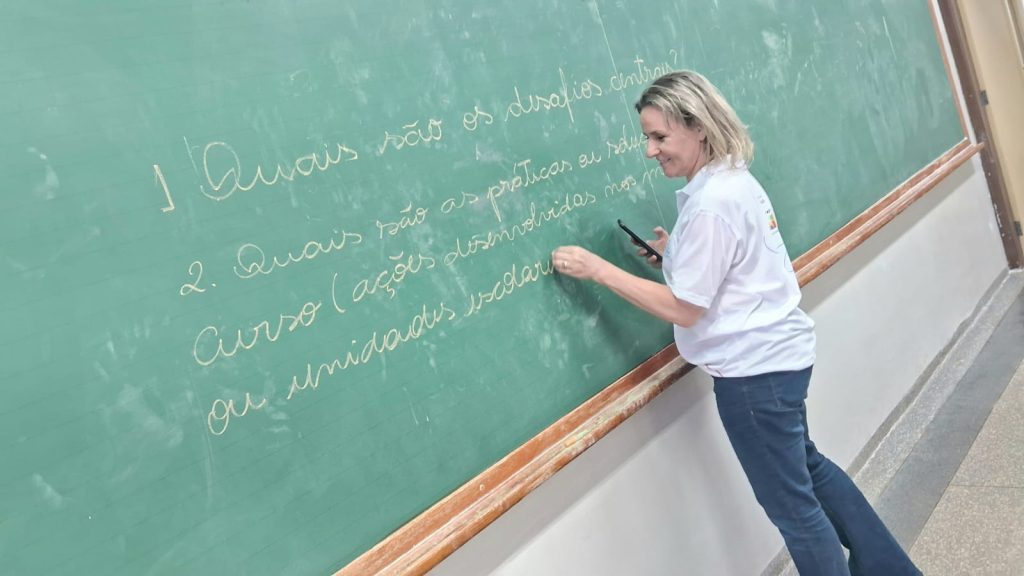 1 Quais são os desafios centrais?
2. Quais são as práticas ou
curso (ações desenvolvidas nos
ou unidades